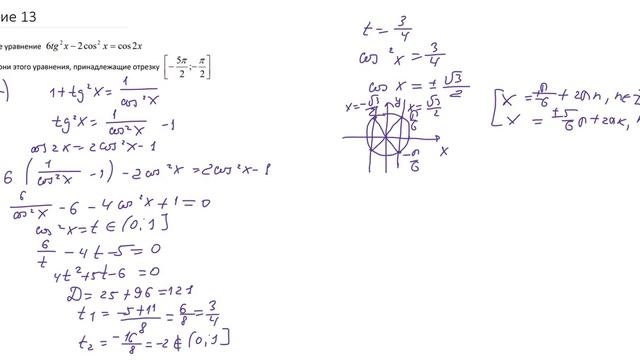 ие 13
е уравнение 6tg²x−2cos²x = cos2x
рни этого уравнения, принадлежащие отрезку [−5π/2; −π/2]
1 + tg²x = 1/cos²x
tg²x = 1/cos²x − 1
cos2x = 2cos²x − 1
6(1/cos²x − 1) − 2cos²x = 2cos²x − 1
6/cos²x − 6 − 4cos²x + 1 = 0
cos²x = t ∈ (0; 1]
6/t − 4t − 5 = 0
4t² + 5t − 6 = 0
D = 25 + 96 = 121
t₁ = −5+11/8 = 6/8 = 3/4
t₂ = −16/8 = −2 ∉ (0; 1]
t = 3/4
cos²x = 3/4
cos x = ±√3/2
x = −√3/2 y x = √3/2
π/6
x
−π/6
[ x = ±π/6 + 2πn, n∈Z
x = ±5/6 π + 2πk,